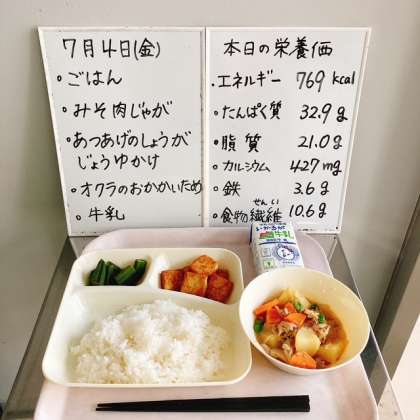 7月4日(金)
・ごはん
・みそ肉じゃが
・あつあげのしょうが
じょうゆかけ
・オクラのおかかいため
・牛乳
本日の栄養価
・エネルギー 769 kcal
・たんぱく質 32.9g
・脂質 21.0g
・カルシウム 427mg
・鉄 3.6g
せんい
・食物繊維 10.6g
牛乳